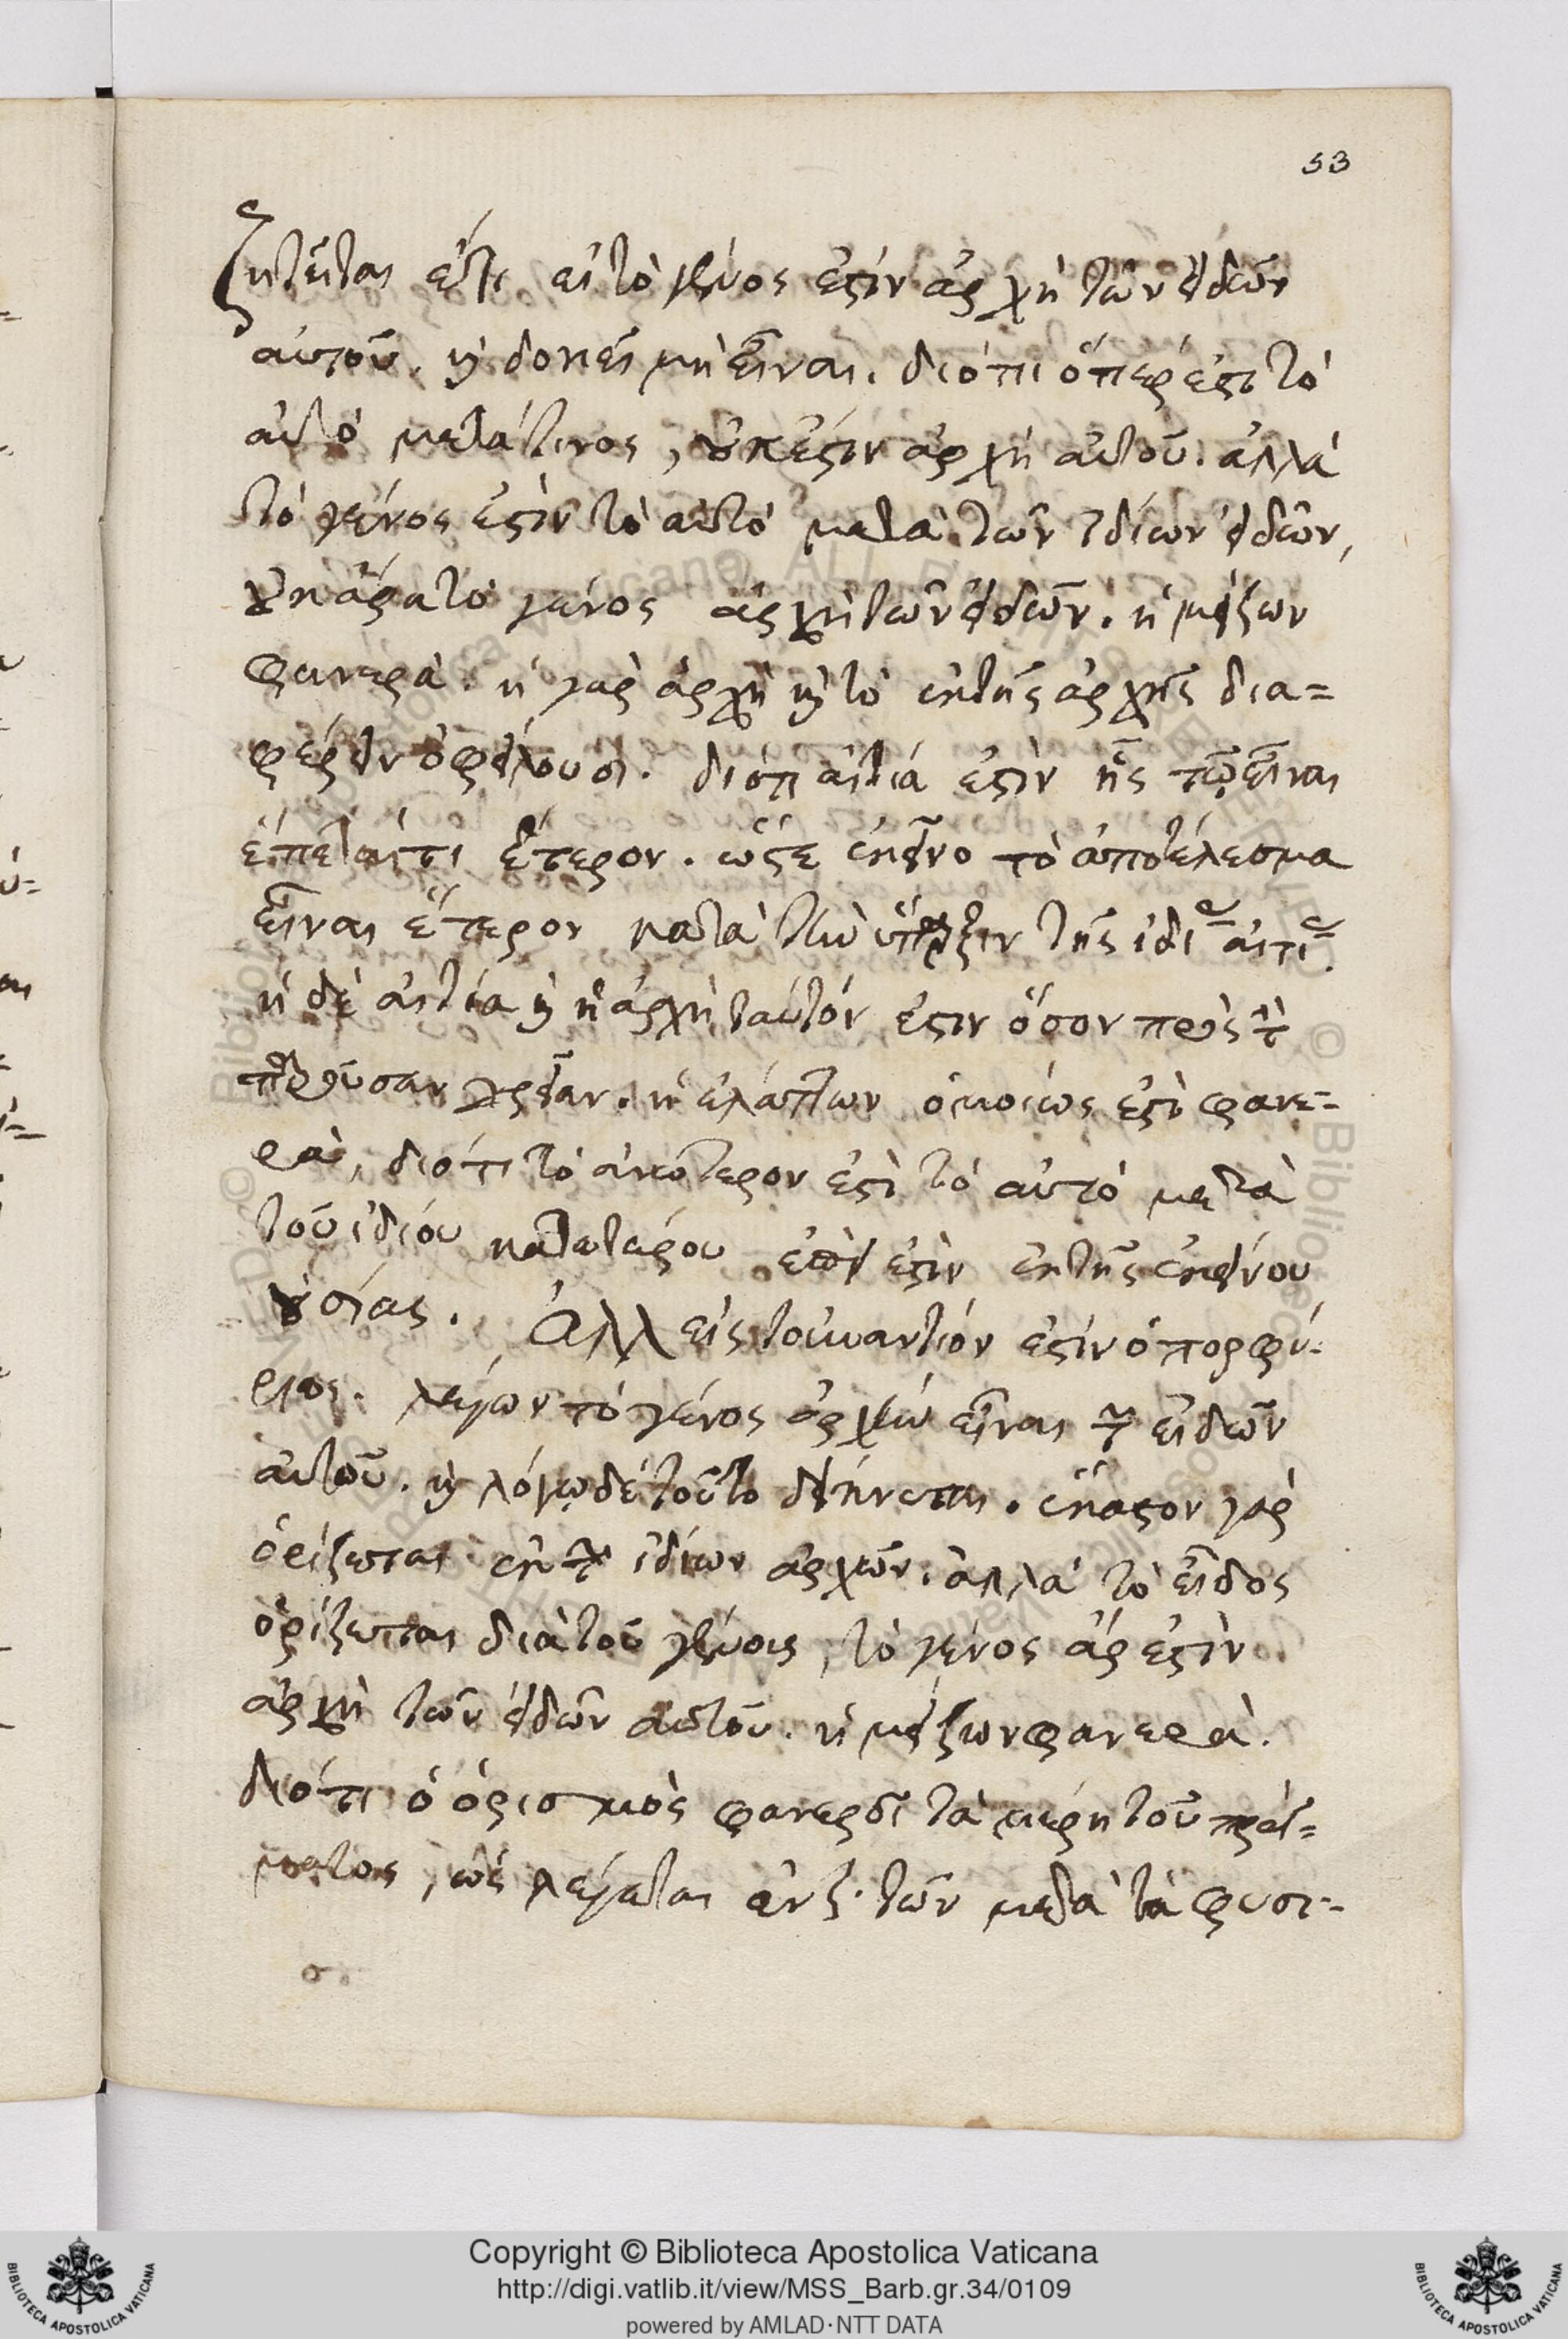 53
ζητεῖται ἔτι εἰ τὸ γένος ἐστὶν ἀρχὴ τῶν εἰδῶν
αὐτοῦ. καὶ δοκεῖ μὴ εἶναι. διότι ὅπερ ἐστὶ τὸ
αὐτὸ μετά τινος, οὐκ ἔστιν ἀρχὴ αὐτοῦ. ἀλλὰ
τὸ γένος ἐστὶν τὸ αὐτὸ μετὰ τῶν ἰδίων εἰδῶν,
οὐκ ἄρα τὸ γένος ἀρχὴ τῶν εἰδῶν. ἡ μείζων
φανερά. ἡ γὰρ ἀρχὴ καὶ τὸ ἐκ τῆς ἀρχῆς δια=
φέρειν ὀφείλουσι. διότι αἰτία ἐστὶν ἧς τῷ εἶναι
ἕπεταί τι ἕτερον. ὥστε ἐκεῖνο τὸ ἀποτέλεσμα
εἶναι ἕτερον κατὰ τὴν ὕπαρξιν τῆς ἰδίας αἰτίας.
ἡ δὲ αἰτία καὶ ἡ ἀρχὴ ταὐτόν ἐστιν ὅσον πρὸς τὴν
παροῦσαν χρείαν. ἡ ἐλάττων ὁμοίως ἐστὶ φανε=
ρὰ, διότι τὸ ἀνώτερον ἐστὶ τὸ αὐτὸ μετὰ
τοῦ ἰδίου κατωτέρου ἐστὶν ἐκ τῆς ἐκείνου
οὐσίας. Ἀλλ' εἰς τοὐναντίον ἐστὶν ὁ πορφύ=
ριος. λέγων τὸ γένος ἀρχὴν εἶναι τῶν εἰδῶν
αὐτοῦ. καὶ λόγῳ δὲ τοῦτο δείκνυται. ἕκαστον γὰρ
ὁρίζεται ἐκ τῶν ἰδίων ἀρχῶν. ἀλλὰ τὸ εἶδος
ὁρίζεται διὰ τοῦ γένους, τὸ γένος ἄρ' ἐστὶν
ἀρχὴ τῶν εἰδῶν αὐτοῦ. ἡ μείζων φανερά.
διότι ὁ ὁρισμὸς φανεροῖ τὰ μέρη τοῦ πράγ=
ματος, ὡς λέγεται ἐν ζ. τῶν μετὰ τὰ φυσι=
Copyright © Biblioteca Apostolica Vaticana
http://digi.vatlib.it/view/MSS_Barb.gr.34/0109
powered by AMLAD·NTT DATA